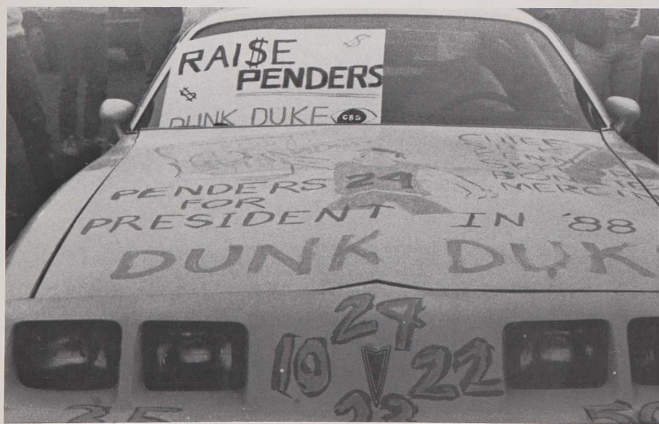 RAI$E
$
PENDERS
$
DUNK DUKE
CBS
24
PENDERS
FOR
PRESIDENT IN '88
DUNK DUK
24
10
22